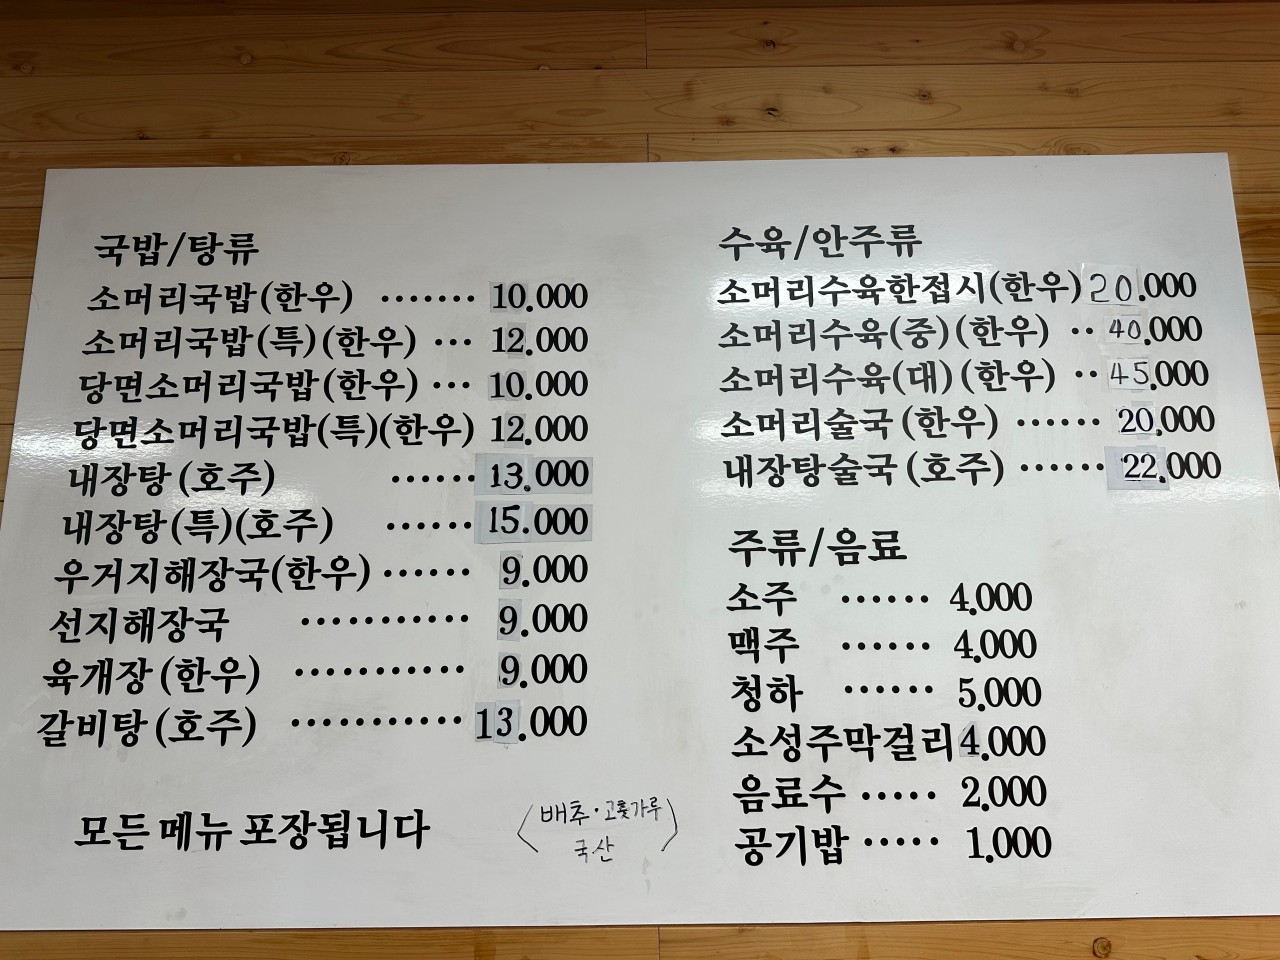 국밥/탕류
소머리국밥(한우) ······· 10.000
소머리국밥(특)(한우) ··· 12.000
당면소머리국밥(한우) ··· 10.000
당면소머리국밥(특)(한우) 12.000
내장탕(호주) ······ 13.000
내장탕(특)(호주) ······ 15.000
우거지해장국(한우) ······ 9.000
선지해장국 ··········· 9.000
육개장(한우) ··········· 9.000
갈비탕(호주) ··········· 13.000
모든 메뉴 포장됩니다
〈배추·고춧가루
국산〉
수육/안주류
소머리수육한접시(한우) 20.000
소머리수육(중)(한우) ·· 40.000
소머리수육(대)(한우) ·· 45.000
소머리술국(한우) ······ 20.000
내장탕술국(호주) ······ 22.000
주류/음료
소주 ······ 4.000
맥주 ······ 4.000
청하 ······ 5.000
소성주막걸리 4.000
음료수 ····· 2.000
공기밥 ····· 1.000